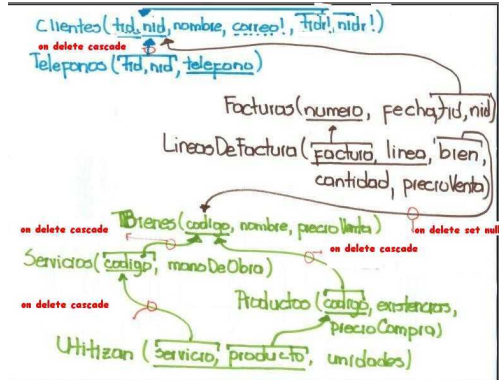 Clientes(tid, nid, nombre, correo!, tidr!, nidr!)
on delete cascade
Telefonos(tid, nid, telefono)
Facturas(numero, fecha, tid, nid)
LineasDeFactura(factura, linea, bien,
cantidad, precioVenta)
Bienes(codigo, nombre, precioVenta)
on delete cascade
on delete set null
on delete cascade
Servicios(codigo, manoDeObra)
on delete cascade
Productos(codigo, existencias,
precioCompra)
Utilizan (servicio, producto, unidades)